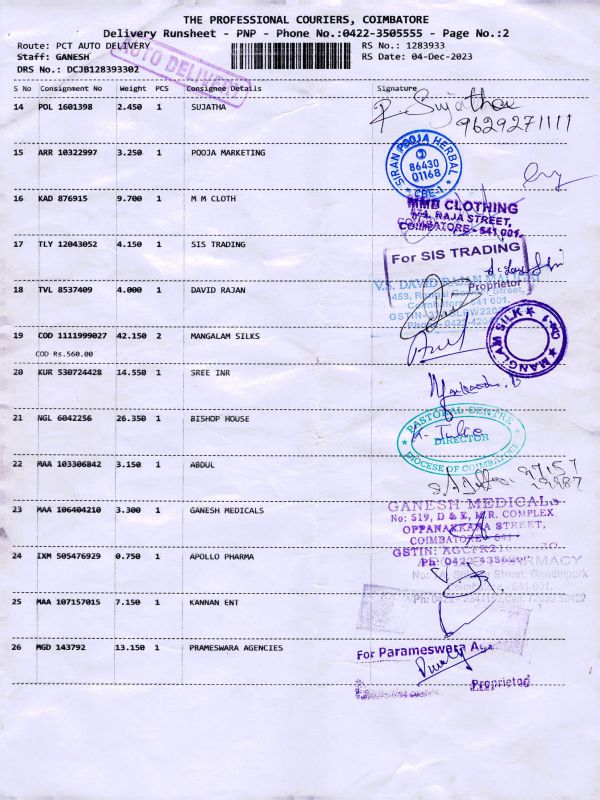 THE PROFESSIONAL COURIERS, COIMBATORE
Delivery Runsheet - PNP - Phone No.:0422-3505555 - Page No.:2
Route: PCT AUTO DELIVERY
RS No.: 1283933
Staff: GANESH
RS Date: 04-Dec-2023
AUTO DELIVERY
DRS No.: DCJB128393302
S No Consignment No Weight PCS Consignee Details Signature
14 POL 1601398 2.450 1 SUJATHA
R. Sujatha
9629271111
15 ARR 10322997 3.250 1 POOJA MARKETING
SIRAN POOJA HERBAL
86430
01168
CBE-1
16 KAD 876915 9.700 1 M M CLOTH
MMB CLOTHING
RAJA STREET,
COIMBATORE - 641 001.
17 TLY 12043052 4.150 1 SIS TRADING
For SIS TRADING
Proprietor
18 TVL 8537409 4.000 1 DAVID RAJAN
V.S. DAVID RAJAN
Street,
Coimbatore 641 001.
19 COD 1111999027 42.150 2 MANGALAM SILKS
COD Rs.560.00
MANGLAM SILK
20 KUR 530724428 14.550 1 SREE INR
21 NGL 6042256 26.350 1 BISHOP HOUSE
PASTORAL CENTRE
DIRECTOR
DIOCESE OF COIMBATORE
22 MAA 103306842 3.150 1 ABDUL
23 MAA 106404210 3.300 1 GANESH MEDICALS
GANESH MEDICALS
No: 519, D & E, M.R. COMPLEX
OPPANAKKARA STREET,
COIMBATORE - 641
24 IXM 505476929 0.750 1 APOLLO PHARMA
PHARMACY
Street, Gandhipark
25 MAA 107157015 7.150 1 KANNAN ENT
26 MGD 143792 13.150 1 PRAMESWARA AGENCIES
For Parameswara
Proprietor